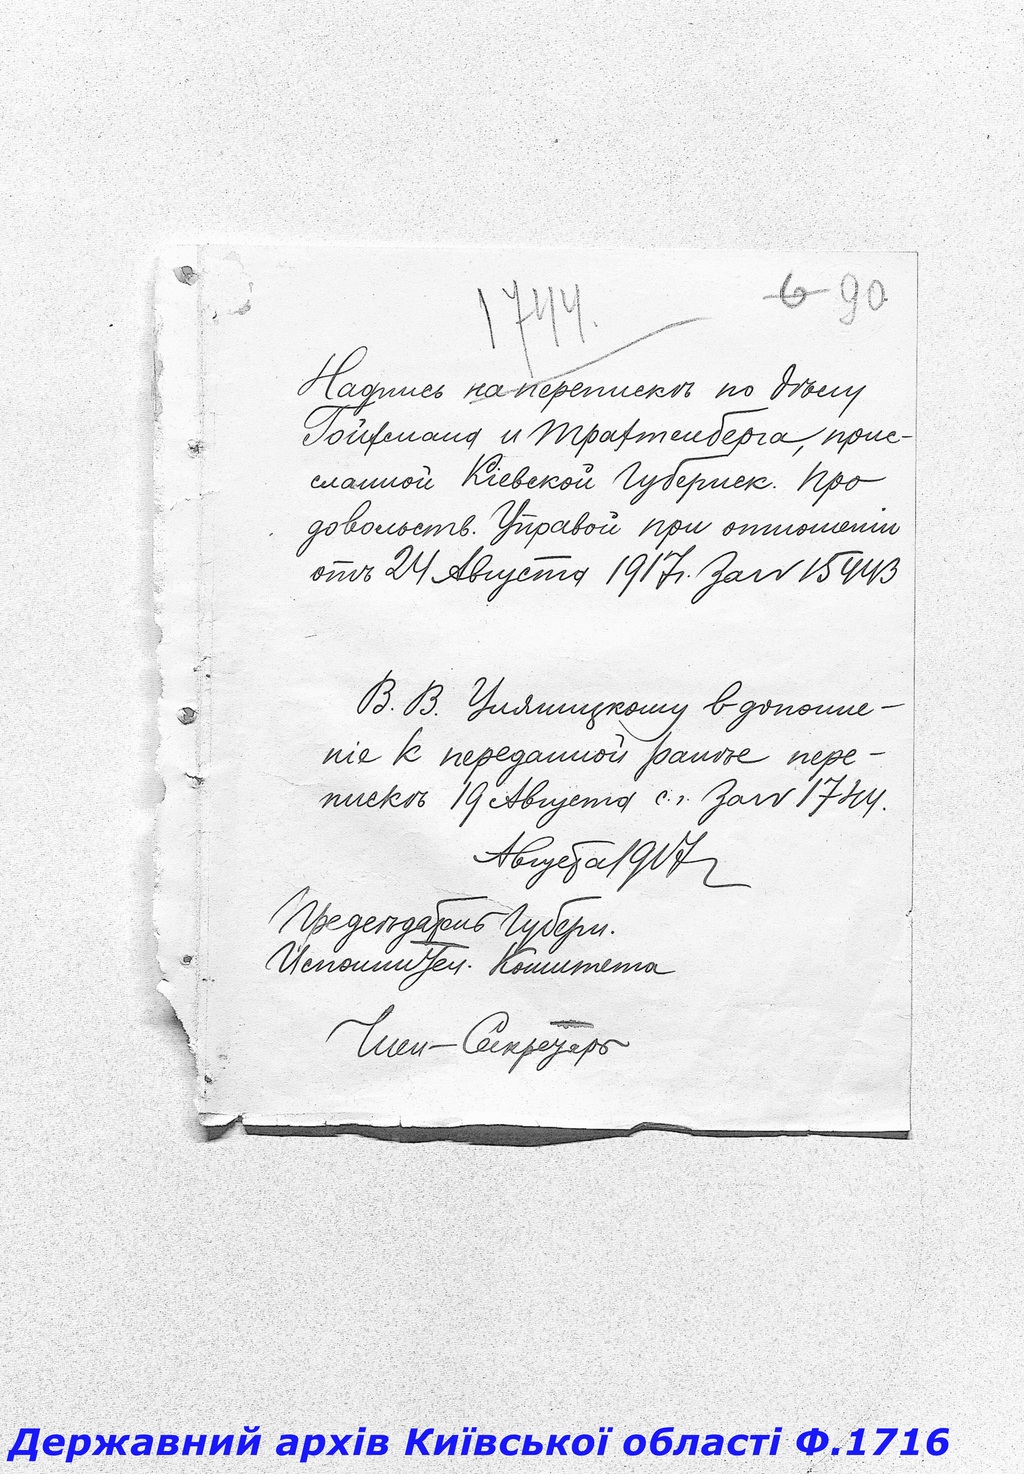 1744.
6 90
Надпись на перепискѣ по дѣлу
Гойхмана и Трахтенберга, прис-
ланной Кіевской Губернск. Про
довольств. Управой при отношеніи
отъ 24 Августа 1917 г. За № 15443
В. В. Уляницкому в дополне-
ніе к переданной ранѣе пере-
пискѣ 19 Августа с.г. За № 1744.
Августа 1917 г.
Предсѣдатель Губерн.
Исполнител. Комитета
Член-Секретарь
Державний архів Київської області Ф.1716